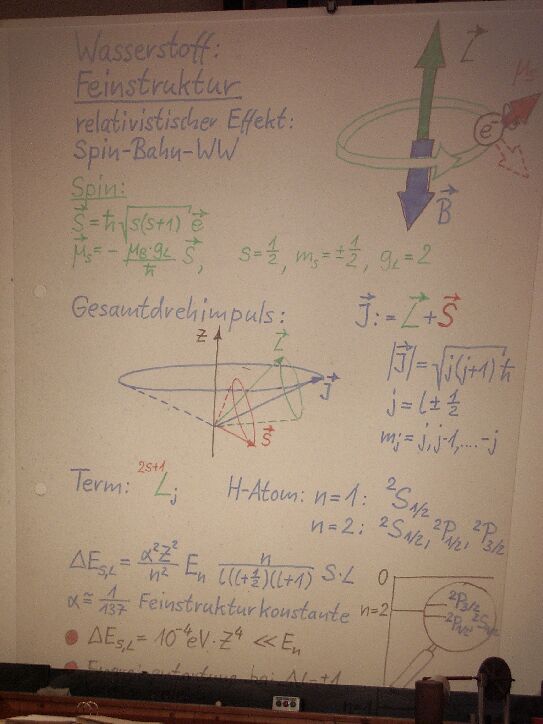 Wasserstoff:
Feinstruktur
relativistischer Effekt:
Spin-Bahn-WW
L⃗
e⁻
B⃗
Spin:
S⃗ = ħ√(s(s+1)) e⃗
μ⃗s = - μB·gL/ħ S⃗, s = 1/2, ms = ±1/2, gL = 2
Gesamtdrehimpuls: J⃗ := L⃗ + S⃗
z
L⃗
J⃗
S⃗
|J⃗| = √(j(j+1)) ħ
j = l ± 1/2
mj = j, j-1, .... -j
Term: ²ˢ⁺¹Lj H-Atom: n=1: ²S1/2
n=2: ²S1/2, ²P1/2, ²P3/2
ΔES,L = α²Z²/n² En n/(l(l+1/2)(l+1)) S·L
α ≅ 1/137 Feinstrukturkonstante
• ΔES,L = 10⁻⁴ eV · Z⁴ << En
0
n=2
²P3/2
²S1/2
²P1/2
n=1